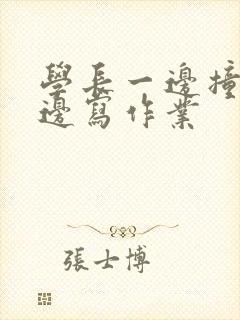 學長一邊撞
邊寫作業
張士博